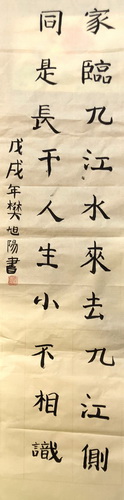 家臨九江水來去九江側
同是長干人生小不相識
戊戌年樊旭陽書